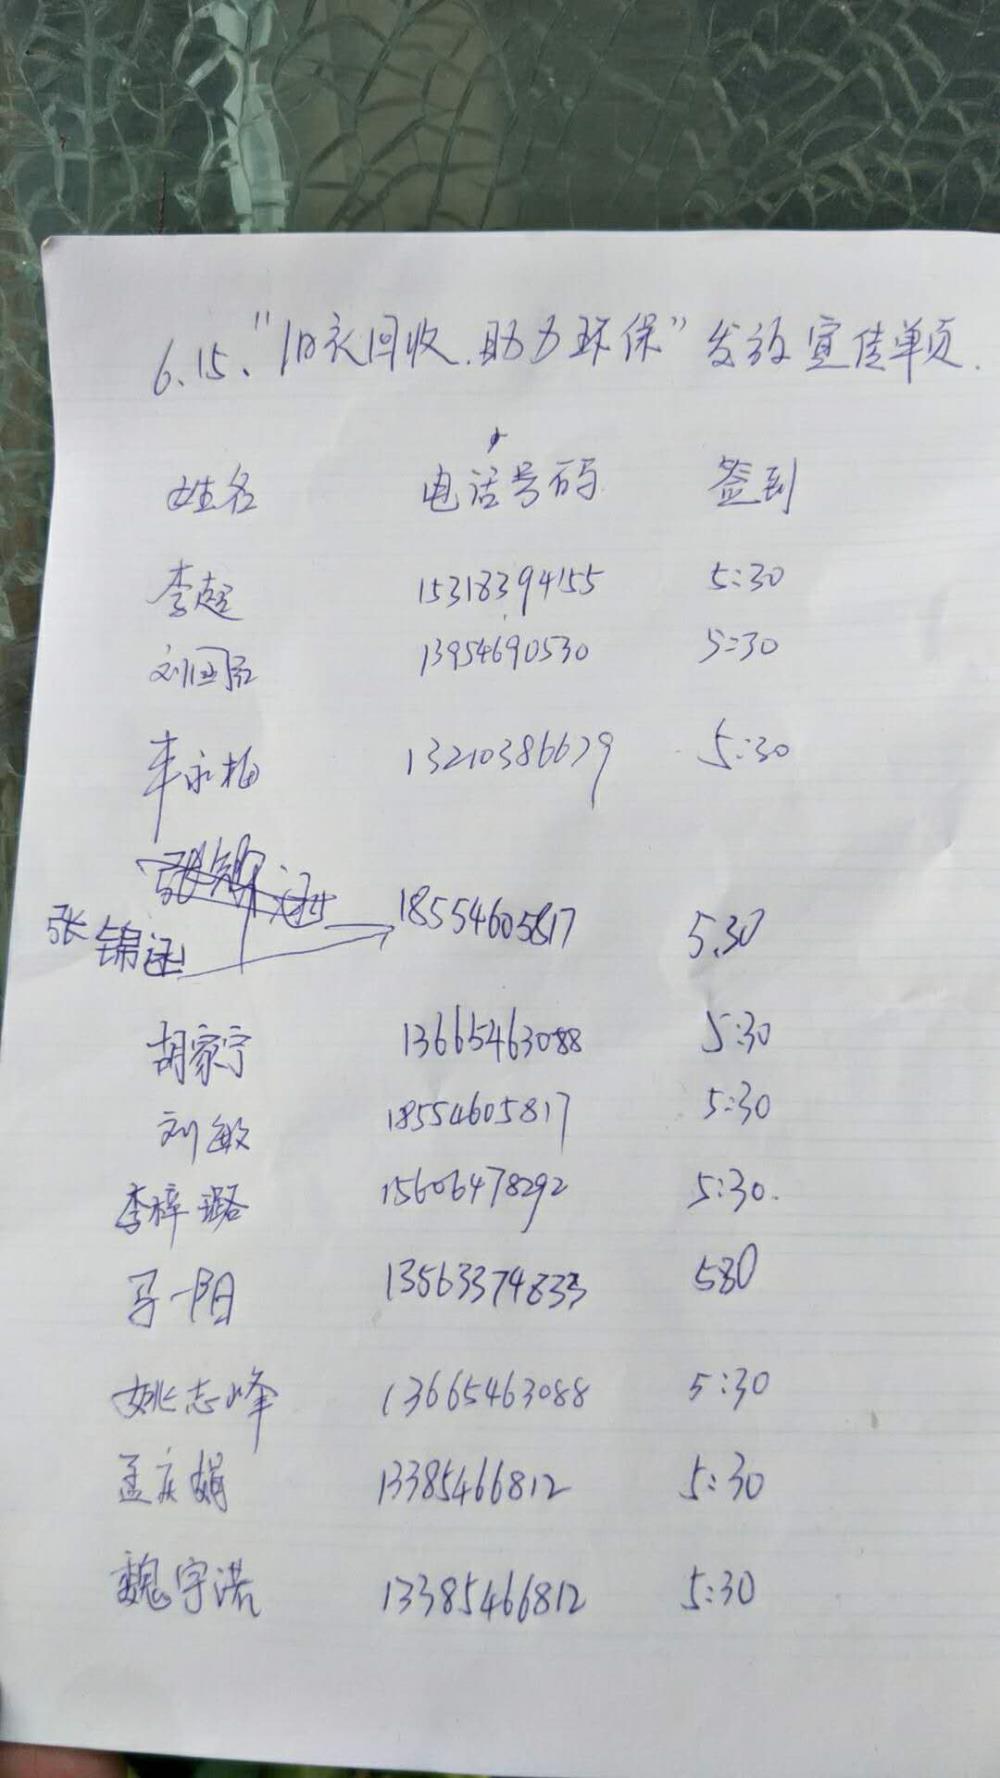 6.15、"旧衣回收.助力环保"发放宣传单页.
姓名 电话号码 签到
李超 15318394155 5:30
刘国君 13954690530 5:30
永梅 13210386679 5:30
张锦 18554605817 5.30
胡家宁 13665463088 5:30
刘敏 18554605817 5:30
李梓璐 15606478292 5:30.
马一阳 13563374833 530
姚志峰 13665463088 5:30
孟庆娟 13385466812 5:30
魏宇诺 13385466812 5:30